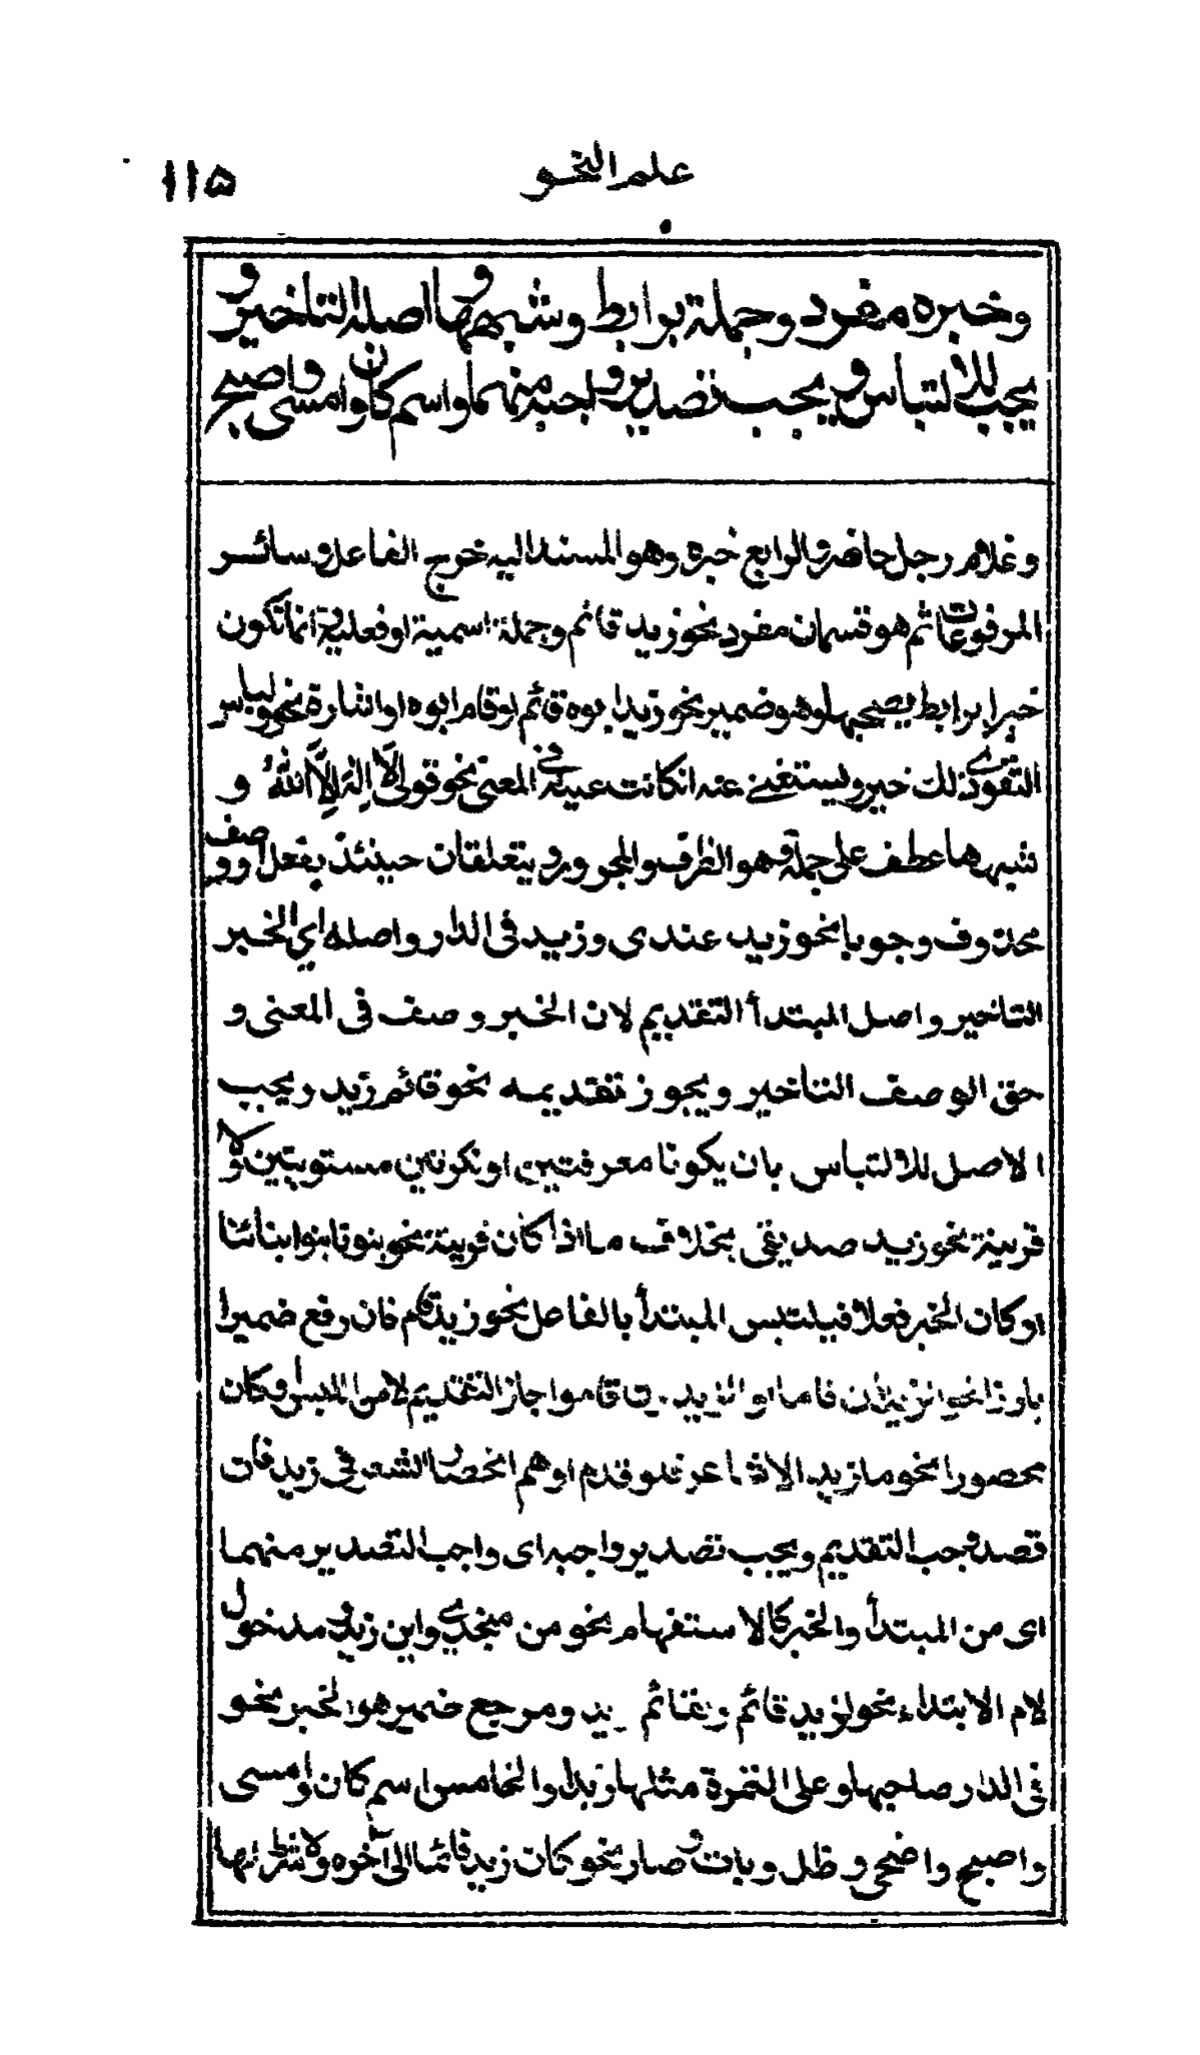 علم النحو
١١۵
وخبره مفرد وجملة برابط وشبهها واصله التاخير و
يجب للالتباس ويجب تصدير واجبه منهما واسم كان وامسى واصبح
وغلام رجل حاضر والرابع خبره وهو المسند اليه خرج الفاعل وسائر
المرفوعات ثم هو قسمان مفرد نحو زيد قائم وجملة اسمية او فعلية وانما تكون
خبرا برابط يصحبها وهو ضمير نحو زيد ابوه قائم او قام ابوه او اشارة نحو ولباس
التقوى ذلك خير ويستغنى عنه ان كانت عينه فى المعنى نحو قولى لا اله الا الله و
شبهها عطف على جملة وهو الظرف والمجرور ويتعلقان حينئذ بفعل او وصف
محذوف وجوبا نحو زيد عندى وزيد فى الدار واصله اي الخبر
التاخير واصل المبتدأ التقديم لان الخبر وصف فى المعنى و
حق الوصف التاخير ويجوز تقديمه نحو قائم زيد ويجب
الاصل للالتباس بان يكونا معرفتين او نكرتين مستويتين ولا
قرينة نحو زيد صديقى بخلاف ما اذا كان قرينة نحو بنونا بنوا بنائنا
او كان الخبر فعلا فيلتبس المبتدأ بالفاعل نحو زيد قام فان رفع ضميرا
بارزا نحو الزيدان قاما او الزيدون قاموا جاز التقديم لامن اللبس او كان
محصورا نحو ما زيد الا شاعر فلو قدم اوهم انحصار الشعر فى زيد فان
قصد وجب التقديم ويجب تصدير واجبه اى واجب التصدير منهما
اى من المبتدأ والخبر كالاستفهام نحو من منجدي واين زيد ومدخول
لام الابتداء نحو لزيد قائم ولقائم زيد ومرجع ضمير هو الخبر نحو
فى الدار صاحبها وعلى التمرة مثلها زبدا والخامس اسم كان وامسى
واصبح واضحى وظل وبات وصار نحو كان زيد قائما الى آخره ولا شرط لها